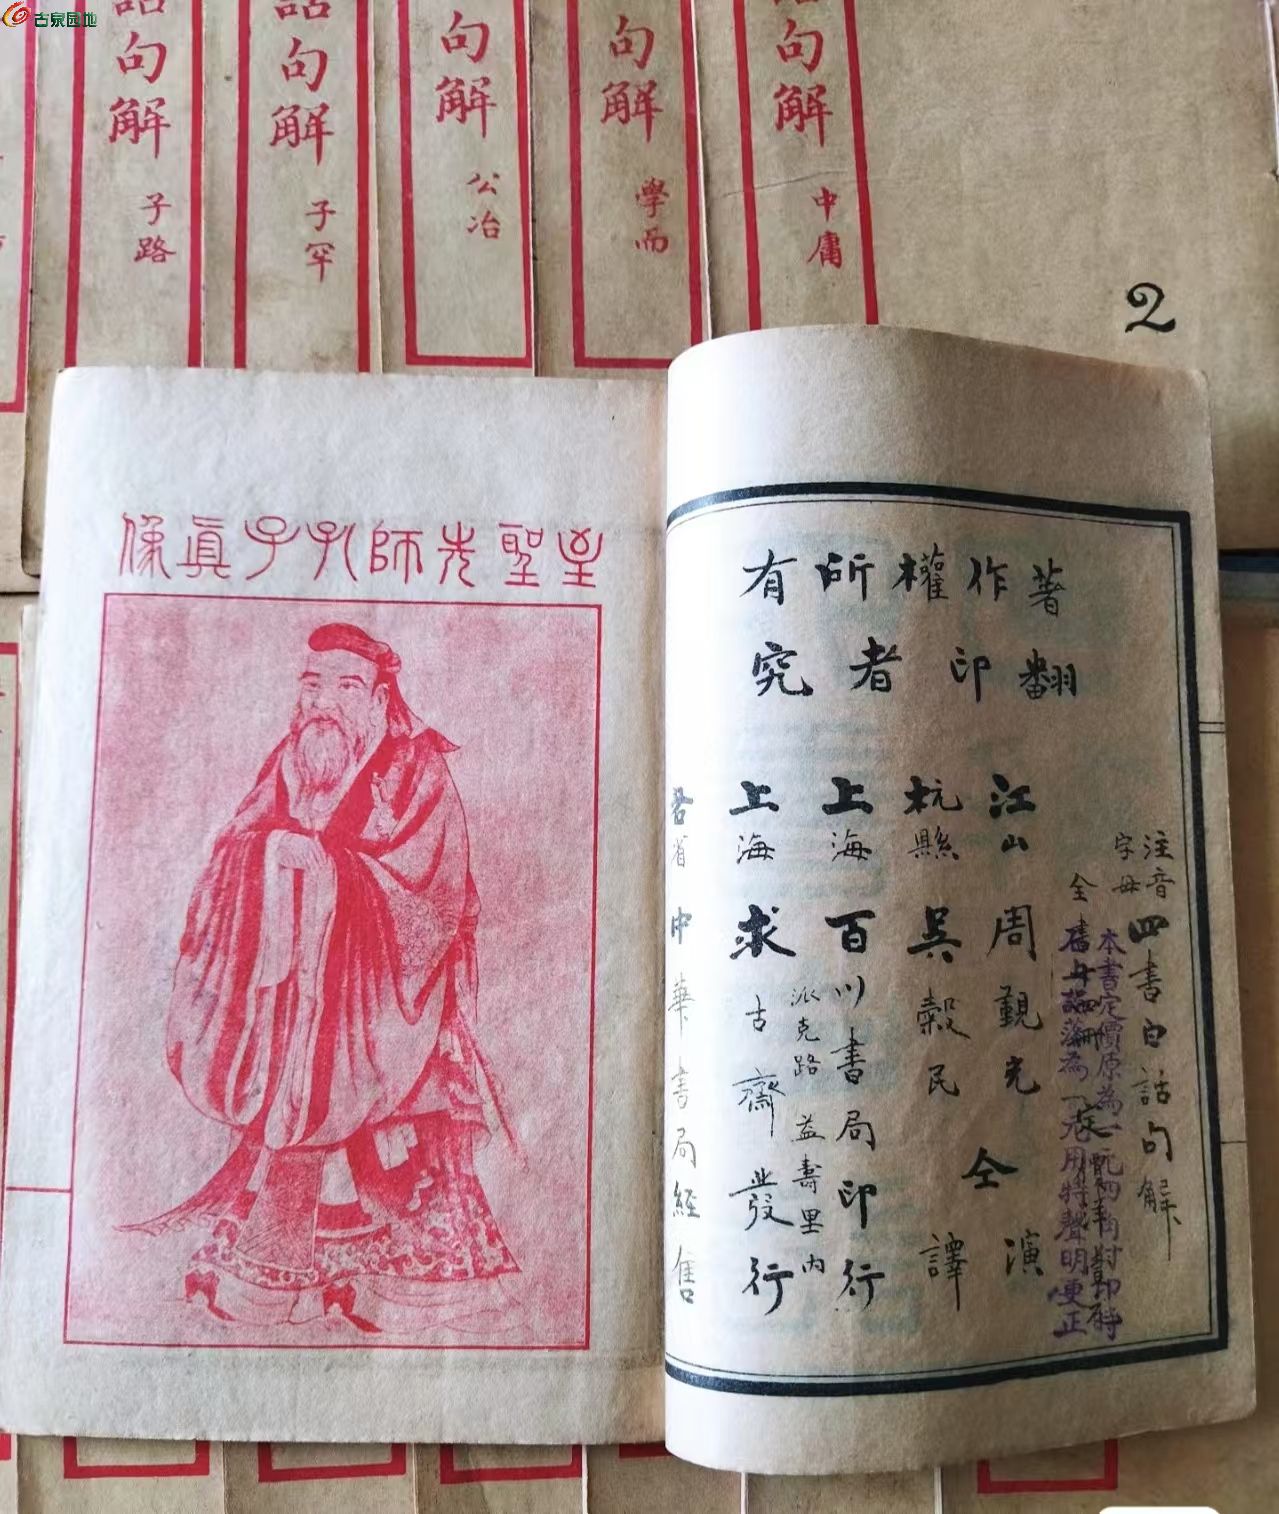 古泉园地
話句解 子路
話句解 子罕
句解 公冶
句解 學而
話句解 中庸
2
至聖先師孔子真像
著作權所有
翻印者究
注音字母四書白話句解
本書定價原為
江山周觀光
杭縣吳縠民
仝演譯
上海百川書局印行
派克路益壽里內
上海求古齋發行
各省中華書局經售